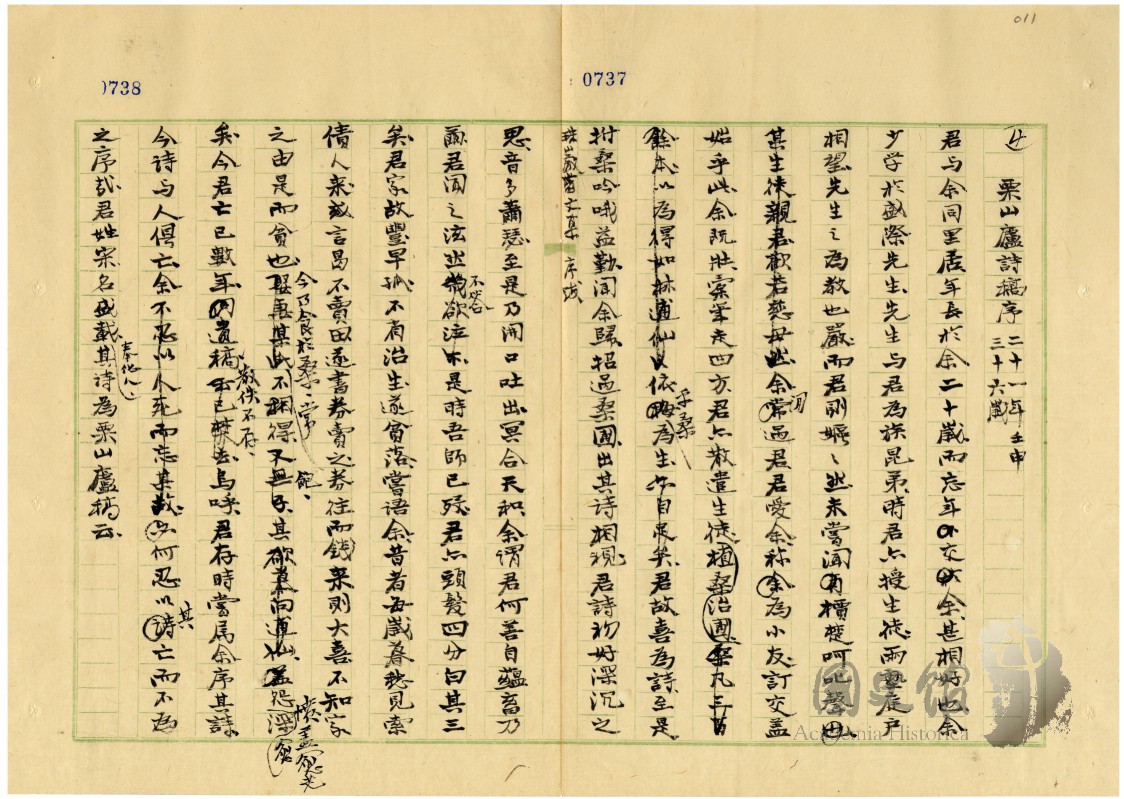 011
0737
0738
栗山廬詩稿序 二十一年壬申 三十六歲
君与余同里居年長於余二十歲而忘年交余甚相好也余
少学於盛際先生先生与君為族昆弟時君亦授生徒兩塾庭户
相望先生之為教也嚴而君則嫗嫗然未嘗聞有檟楚呵叱聲也
其生徒親君歡若慈母然余常間過君君愛余称余為小友訂交蓋
始乎此余既壯橐筆走四方君亦散遣生徒植桑治圃桑凡三百
餘本以為得如林逋仙之依梅為生亦自足矣君故喜為詩至是
乎桑
拊桑吟哦益勤聞余歸招過桑園出其詩相視君詩初好深沉之
珠巖齋文集 序跋
思音多蕭瑟至是乃開口吐出冥合天和余謂君何善自蘊畜乃
爾君聞之泫然幾欲泣下是時吾師已歿君亦頭髮四分白其三
不必合
矣君家故豐早孤不有治生遂貧落嘗語余昔者每歲春愁見索
債人来或言曷不賣田遂書券賣之券往而錢来則大喜不知家
之由是而貧也 其欲慕向逋仙益怨深
今乃食於桑、常 飽、
矣今君亡已數年遺稿已焚去烏呼君存時嘗属余序其詩
散佚不存、
今詩与人俱亡余不忍以人死而忘其故又何忍以詩亡而不為
其
之序哉君姓宋名盛戴其詩為栗山廬稿云
奉他人、
國史館
Academia Historica